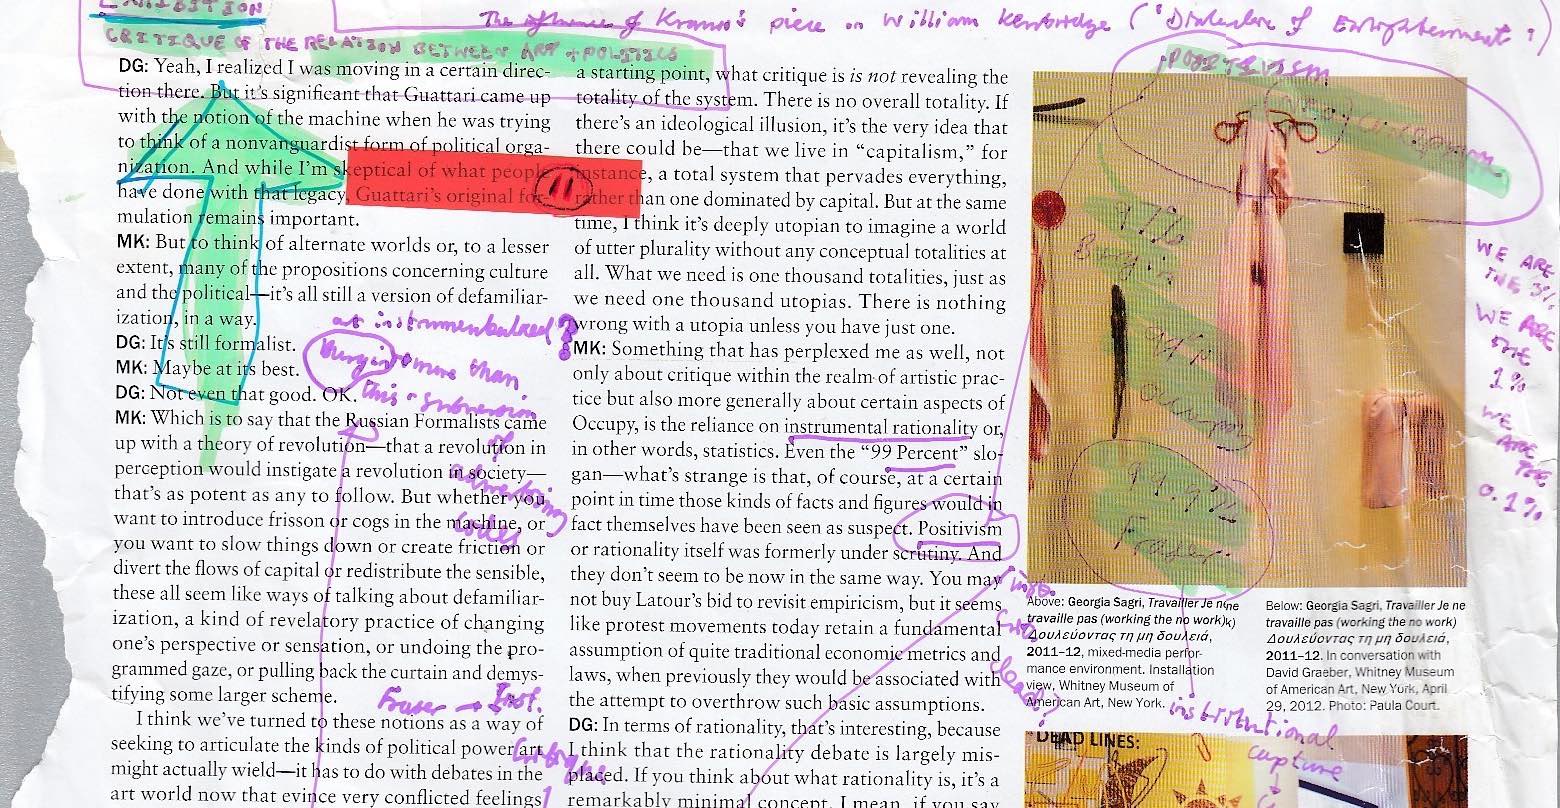 EXHIBITION
The influence of Kraus's piece on William Kentridge (
CRITIQUE OF THE RELATION BETWEEN ART + POLITICS
DG: Yeah, I realized I was moving in a certain direc-
tion there. But it's significant that Guattari came up
with the notion of the machine when he was trying
to think of a nonvanguardist form of political orga-
nization. And while I'm skeptical of what people
have done with that legacy, Guattari's original for-
mulation remains important.
MK: But to think of alternate worlds or, to a lesser
extent, many of the propositions concerning culture
and the political—it's all still a version of defamiliar-
ization, in a way.
as instrumentalized?
DG: It's still formalist.
MK: Maybe at its best.
Burgin more than
this subversion
of
advertising
codes
DG: Not even that good. OK.
MK: Which is to say that the Russian Formalists came
up with a theory of revolution—that a revolution in
perception would instigate a revolution in society—
that's as potent as any to follow. But whether you
want to introduce frisson or cogs in the machine, or
you want to slow things down or create friction or
divert the flows of capital or redistribute the sensible,
these all seem like ways of talking about defamiliar-
ization, a kind of revelatory practice of changing
one's perspective or sensation, or undoing the pro-
grammed gaze, or pulling back the curtain and demys-
tifying some larger scheme.
Fraser → Inst.
Critique
I think we've turned to these notions as a way of
seeking to articulate the kinds of political power art
might actually wield—it has to do with debates in the
art world now that evince very conflicted feelings
a starting point, what critique is is not revealing the
totality of the system. There is no overall totality. If
there's an ideological illusion, it's the very idea that
there could be—that we live in "capitalism," for
instance, a total system that pervades everything,
rather than one dominated by capital. But at the same
time, I think it's deeply utopian to imagine a world
of utter plurality without any conceptual totalities at
all. What we need is one thousand totalities, just as
we need one thousand utopias. There is nothing
wrong with a utopia unless you have just one.
MK: Something that has perplexed me as well, not
only about critique within the realm of artistic prac-
tice but also more generally about certain aspects of
Occupy, is the reliance on instrumental rationality or,
in other words, statistics. Even the "99 Percent" slo-
gan—what's strange is that, of course, at a certain
point in time those kinds of facts and figures would in
fact themselves have been seen as suspect. Positivism
or rationality itself was formerly under scrutiny. And
they don't seem to be now in the same way. You may
not buy Latour's bid to revisit empiricism, but it seems
like protest movements today retain a fundamental
assumption of quite traditional economic metrics and
laws, when previously they would be associated with
the attempt to overthrow such basic assumptions.
DG: In terms of rationality, that's interesting, because
I think that the rationality debate is largely mis-
placed. If you think about what rationality is, it's a
remarkably minimal concept. I mean, if you say
POSITIVISM
97%
Burgin
99%
Occupy
99.9%
Fraser
WE ARE
THE 3%
WE ARE
THE
1%
WE
ARE
THE
0.1%
Above: Georgia Sagri, Travailler Je ne
travaille pas (working the no work)
Δουλεύοντας τη μη δουλειά,
2011–12, mixed-media perfor-
mance environment. Installation
view, Whitney Museum of
American Art, New York.
Below: Georgia Sagri, Travailler Je ne
travaille pas (working the no work)
Δουλεύοντας τη μη δουλειά,
2011–12. In conversation with
David Graeber, Whitney Museum
of American Art, New York, April
29, 2012. Photo: Paula Court.
institutional
capture
DEAD LINES: